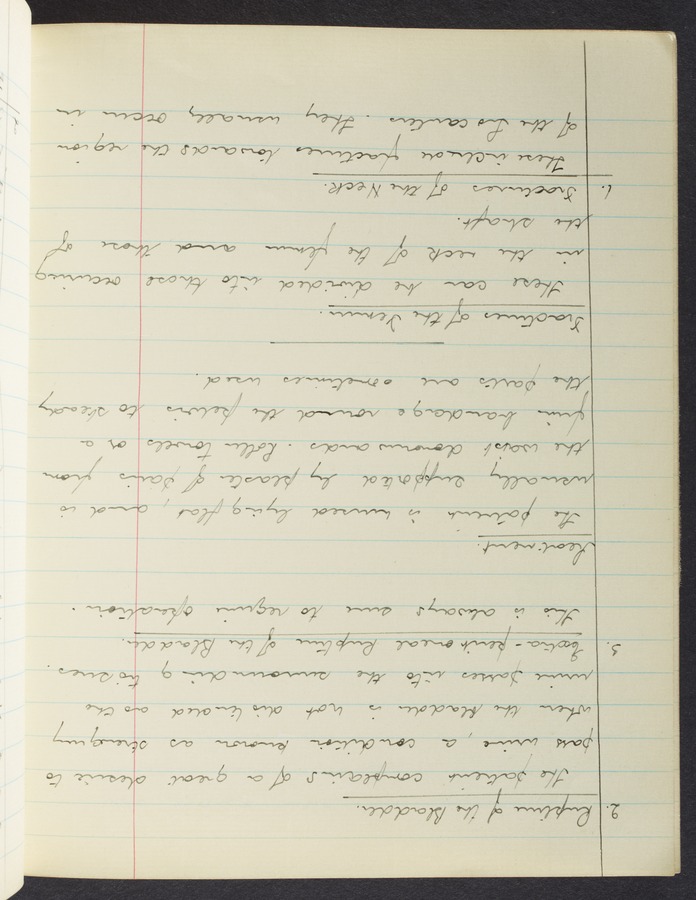 2. Rupture of the Bladder.
The patient complains of a great desire to
pass urine, a condition known as strangury
when the bladder is not distended as the
urine passes into the surrounding tissues.
3. Extra-peritoneal Rupture of the Bladder.
This is always sure to require operation.
Treatment.
The patient is nursed lying flat, and is
usually supported by plaster of paris from
the waist downwards. Roller towels or a
firm bandage round the pelvis to steady
the parts are sometimes used.
Fractures of the Femur.
These can be divided into those occuring
in the neck of the femur and those of
the shaft.
1. Fractures of the Neck.
These include fractures towards the region
of the trocanters. They usually occur in